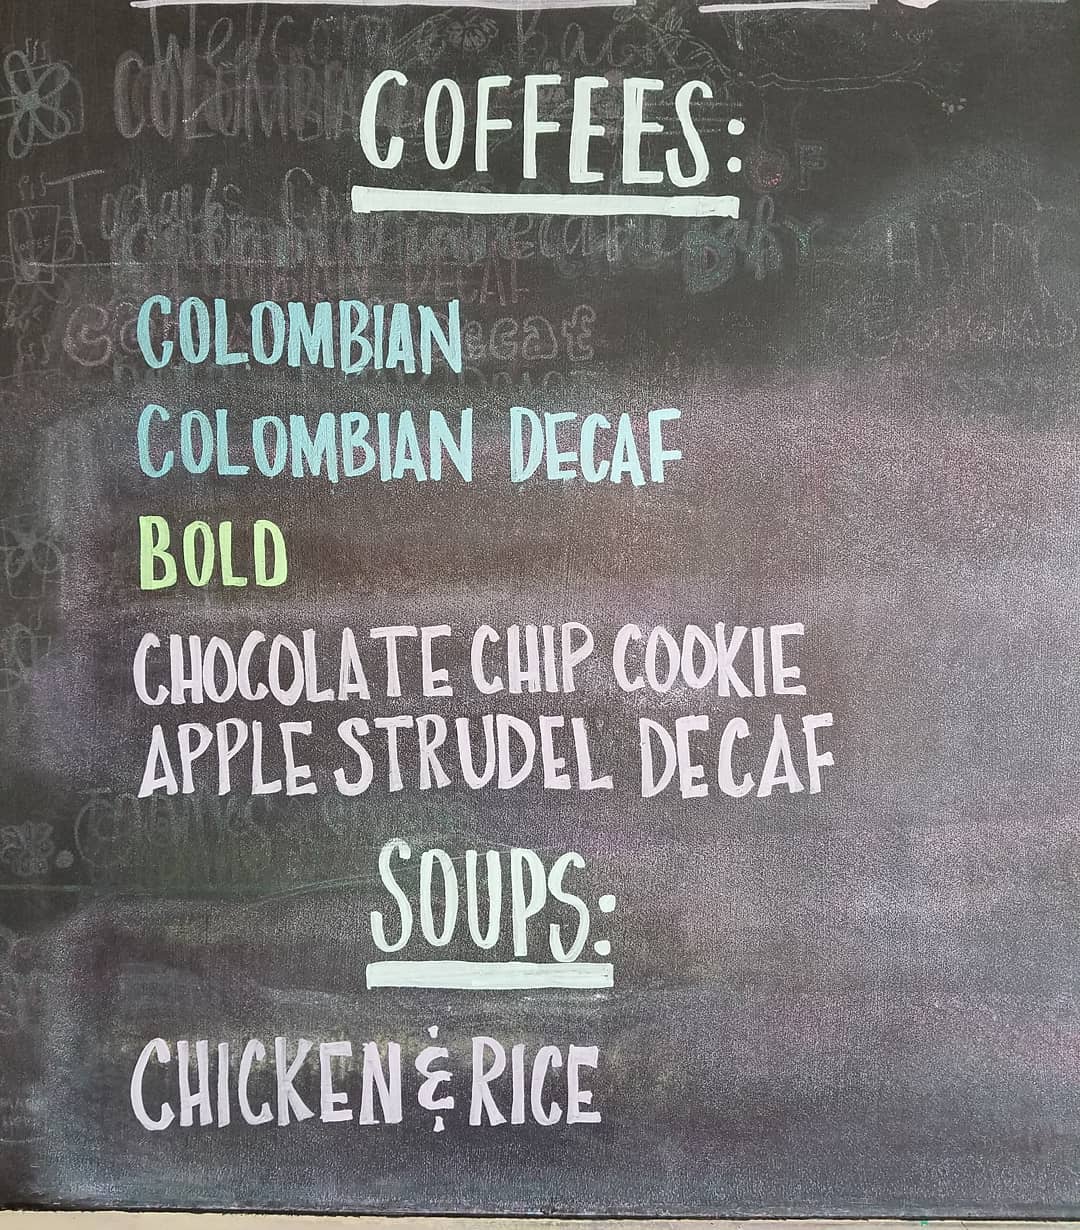 COFFEES:
COLOMBIAN
COLOMBIAN DECAF
BOLD
CHOCOLATE CHIP COOKIE
APPLE STRUDEL DECAF
SOUPS:
CHICKEN & RICE